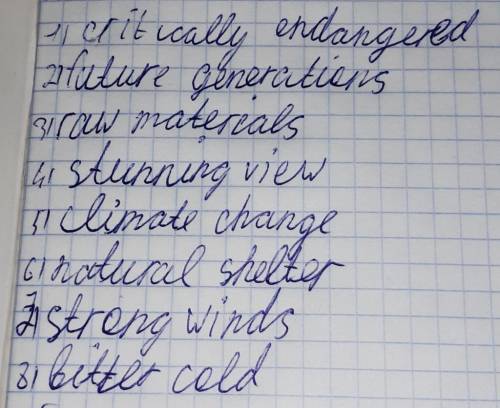 1) critically endangered
2) future generations
3) raw materials
4) stunning view
5) climate change
6) natural shelter
7) strong winds
8) bitter cold